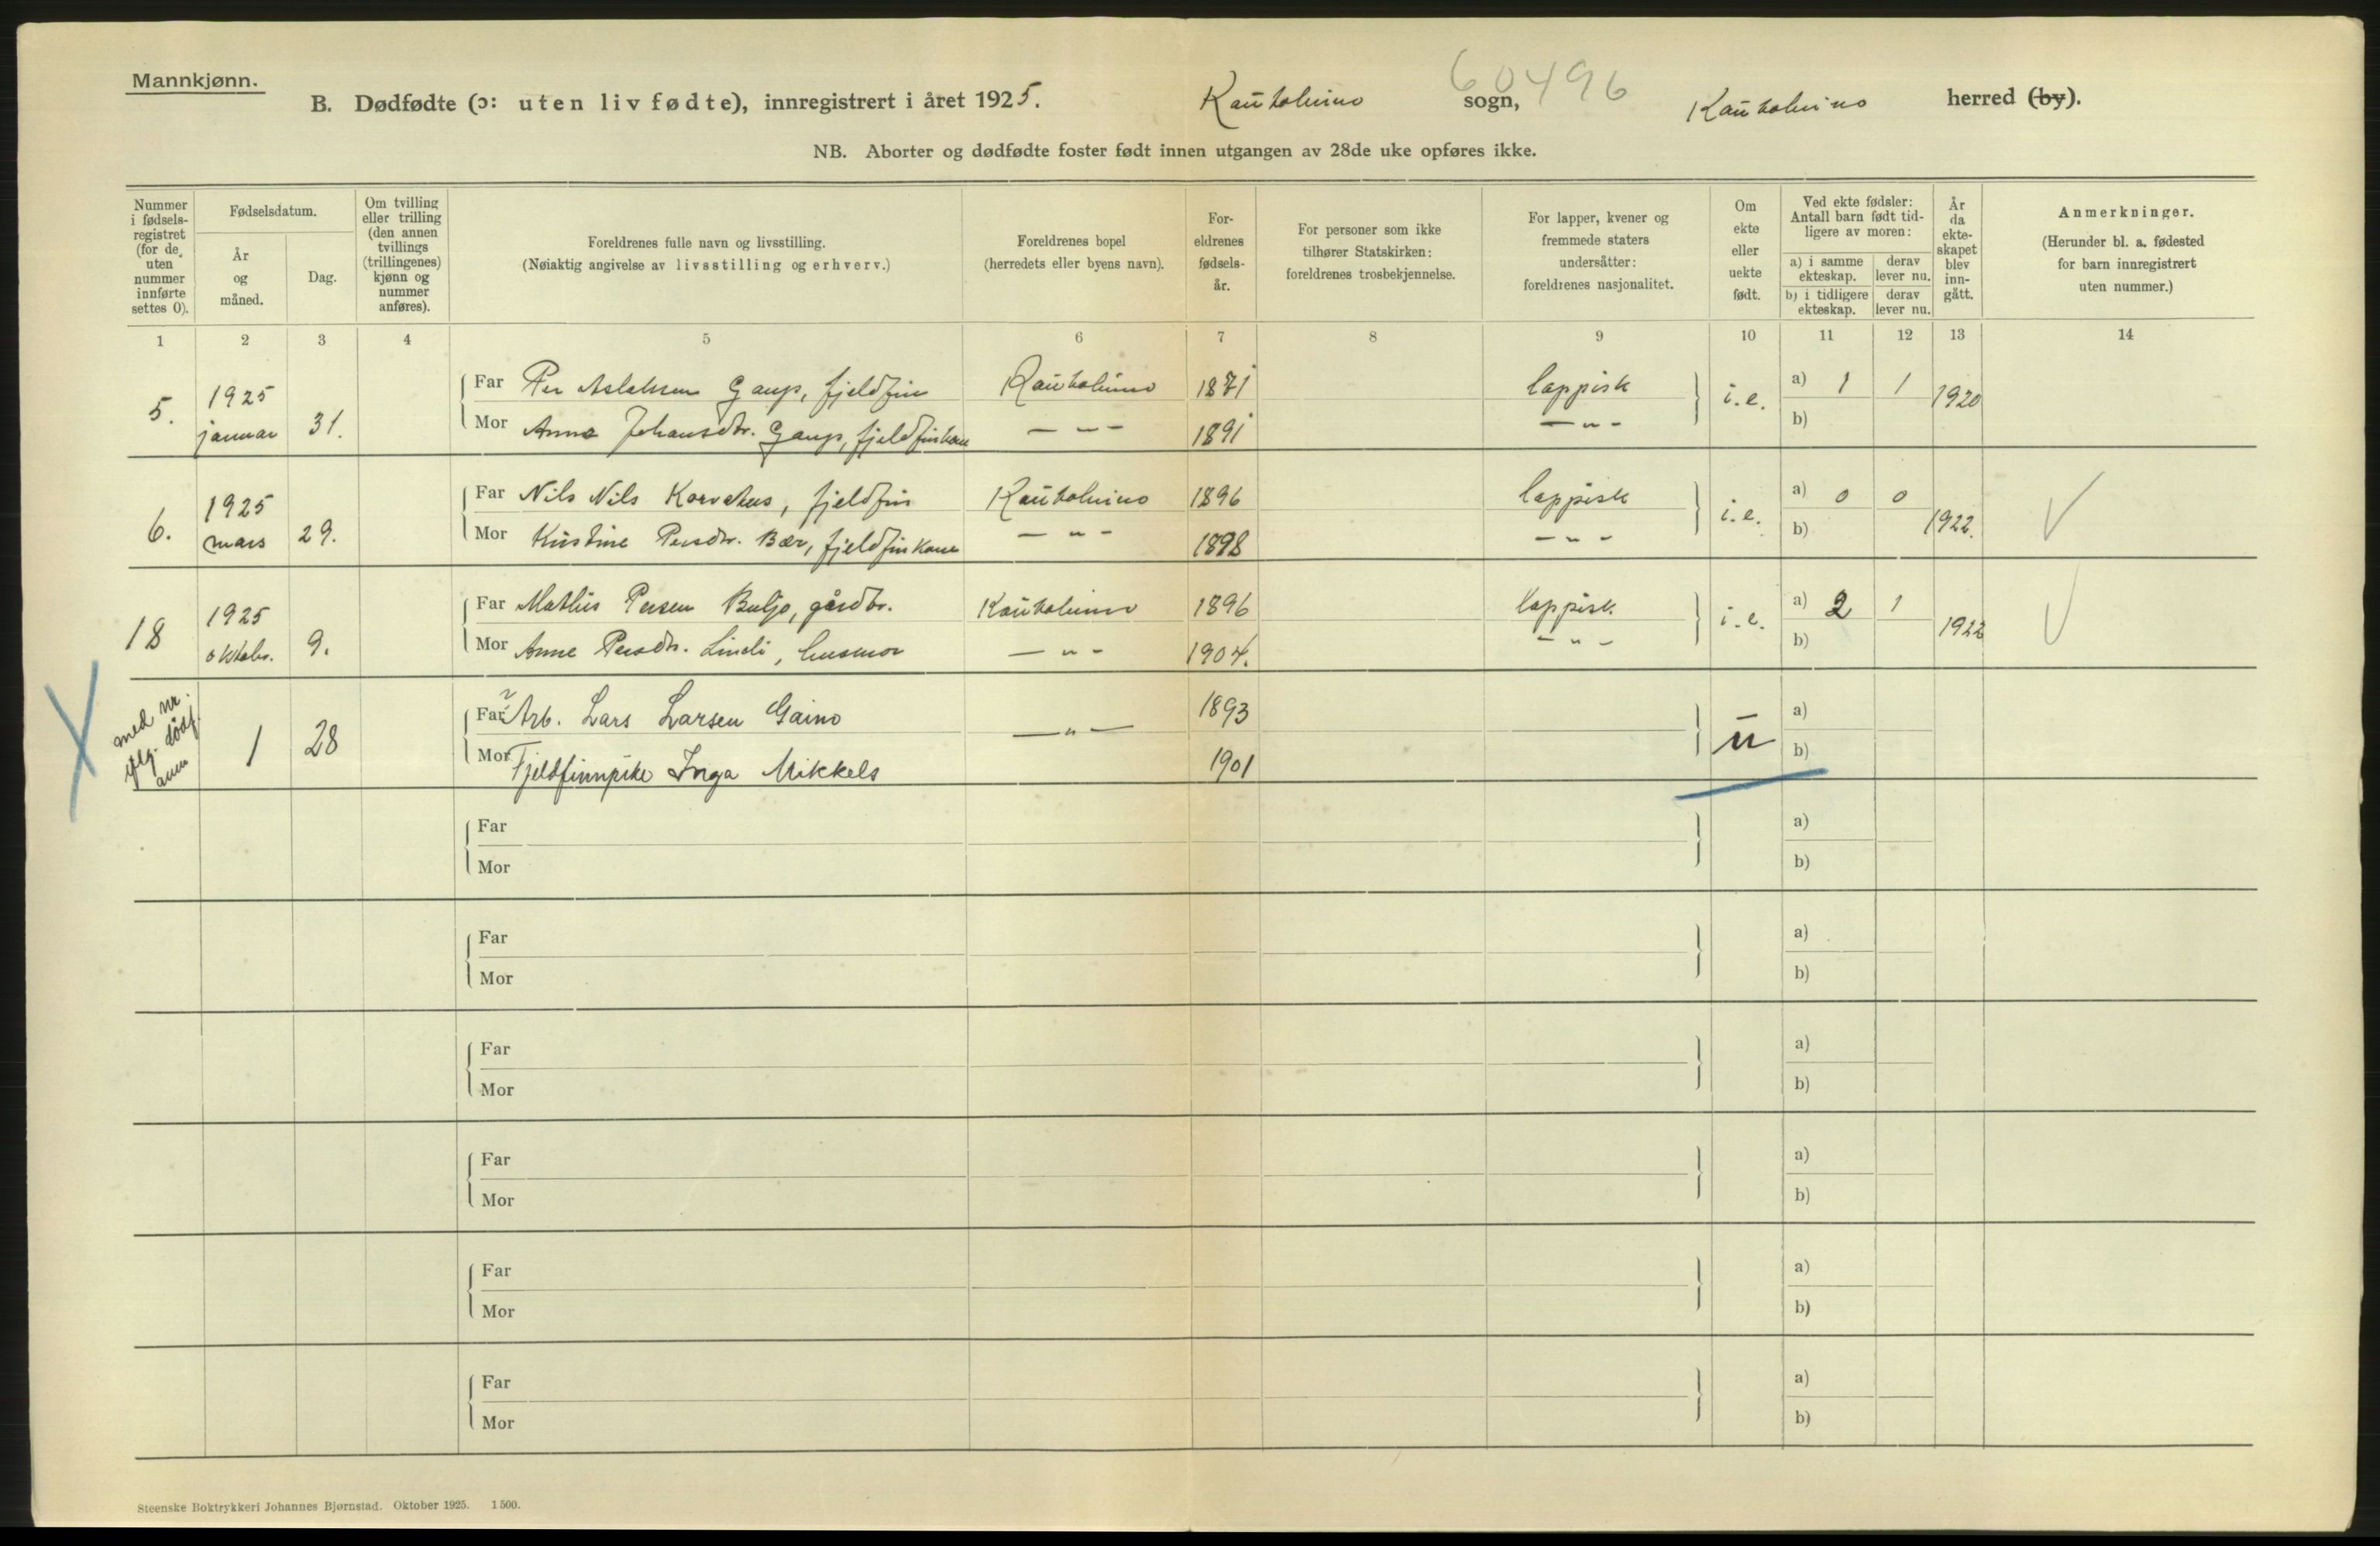 Mannkjønn.
B. Dødfødte (ɔ: uten liv fødte), innregistrert i året 1925. Kautokeino sogn, Kautokeino herred (by).
60496
NB. Aborter og dødfødte foster født innen utgangen av 28de uke opføres ikke.
Nummer i fødsels-registret (for de uten nummer innførte settes 0).
Fødselsdatum.
År og måned.
Dag.
Om tvilling eller trilling (den annen tvillings (trillingenes) kjønn og nummer anføres).
Foreldrenes fulle navn og livsstilling.
(Nøiaktig angivelse av livsstilling og erhverv.)
Foreldrenes bopel
(herredets eller byens navn).
For-eldrenes fødsels-år.
For personer som ikke tilhører Statskirken: foreldrenes trosbekjennelse.
For lapper, kvener og fremmede staters undersåtter: foreldrenes nasjonalitet.
Om ekte eller uekte født.
Ved ekte fødsler: Antall barn født tid-ligere av moren:
a) i samme ekteskap. derav lever nu.
b) i tidligere ekteskap. derav lever nu.
År da ekte-skapet blev inn-gått.
Anmerkninger.
(Herunder bl. a. fødested for barn innregistrert uten nummer.)
1 2 3 4 5 6 7 8 9 10 11 12 13 14
5. 1925 januar 31.
Far Per Aslaksen Gaup, fjeldfin Kautokeino 1871 lappisk i.e. a) 1 1 1920
Mor Anna Johansdtr. Gaup, fjeldfinkone — " — 1891 — " — b)
6. 1925 mars 29.
Far Nils Nils Korvatus, fjeldfin Kautokeino 1896 lappisk i.e. a) 0 0 1922.
Mor Kristine Persdtr. Bær, fjeldfinkone — " — 1898 — " — b)
18 1925 oktobr. 9.
Far Mathis Persen Buljo, gårdbr. Kautokeino 1896 lappisk. i.e. a) 2 1 1922
Mor Anne Persdtr. Lindi, husmor — " — 1904. — " — b)
med nr. iflg. dödf. anm
1 28
Far Arb. Lars Larsen Gaino — " — 1893 u a)
Mor Fjeldfinnpike Inga Mikkels 1901 b)
Far a)
Mor b)
Far a)
Mor b)
Far a)
Mor b)
Far a)
Mor b)
Far a)
Mor b)
Far a)
Mor b)
Steenske Boktrykkeri Johannes Bjørnstad. Oktober 1925. 1500.